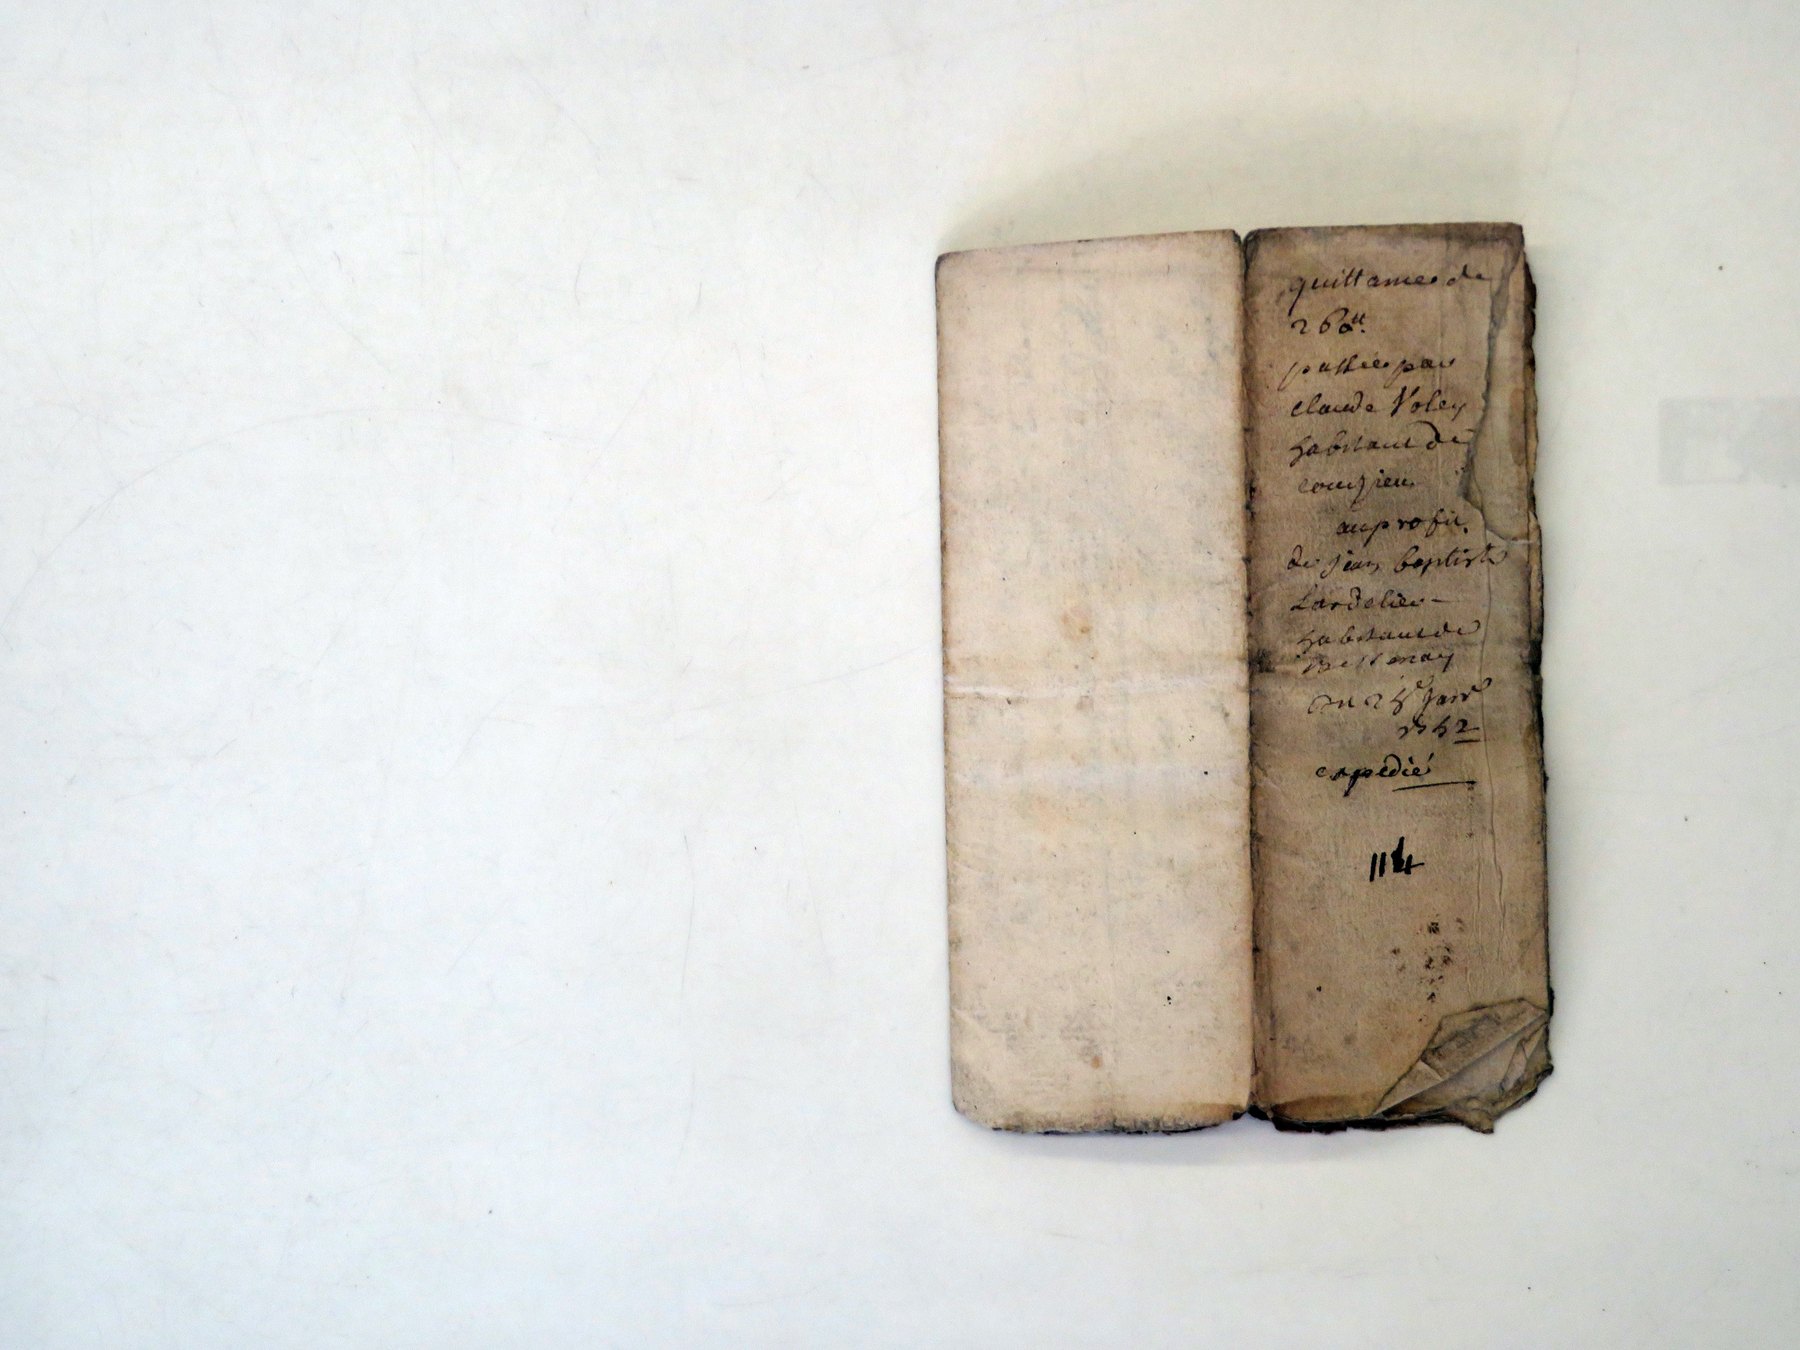 quittance de
260ᵗᵗ.
passée par
Claude Voley
habitant de
couzieu
au profit.
de jean baptiste
Lardelier –
habitant de

du 25ᵉ Janʳ

expedié
114